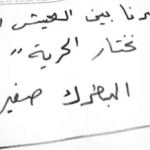 بين العيش
نختار الحرية"
البطرك صفير